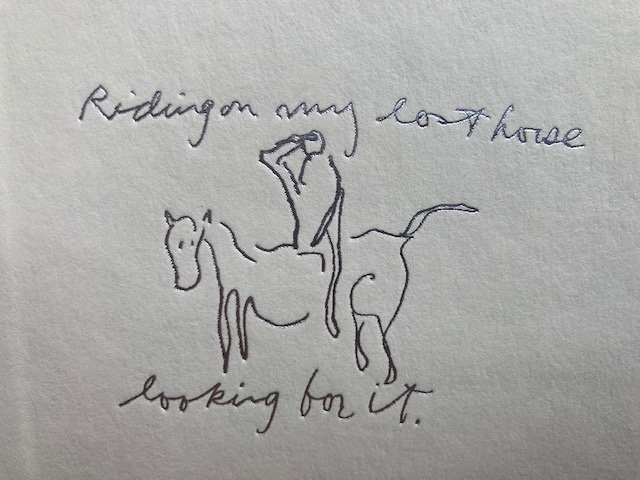 Riding on my lost horse
looking for it.